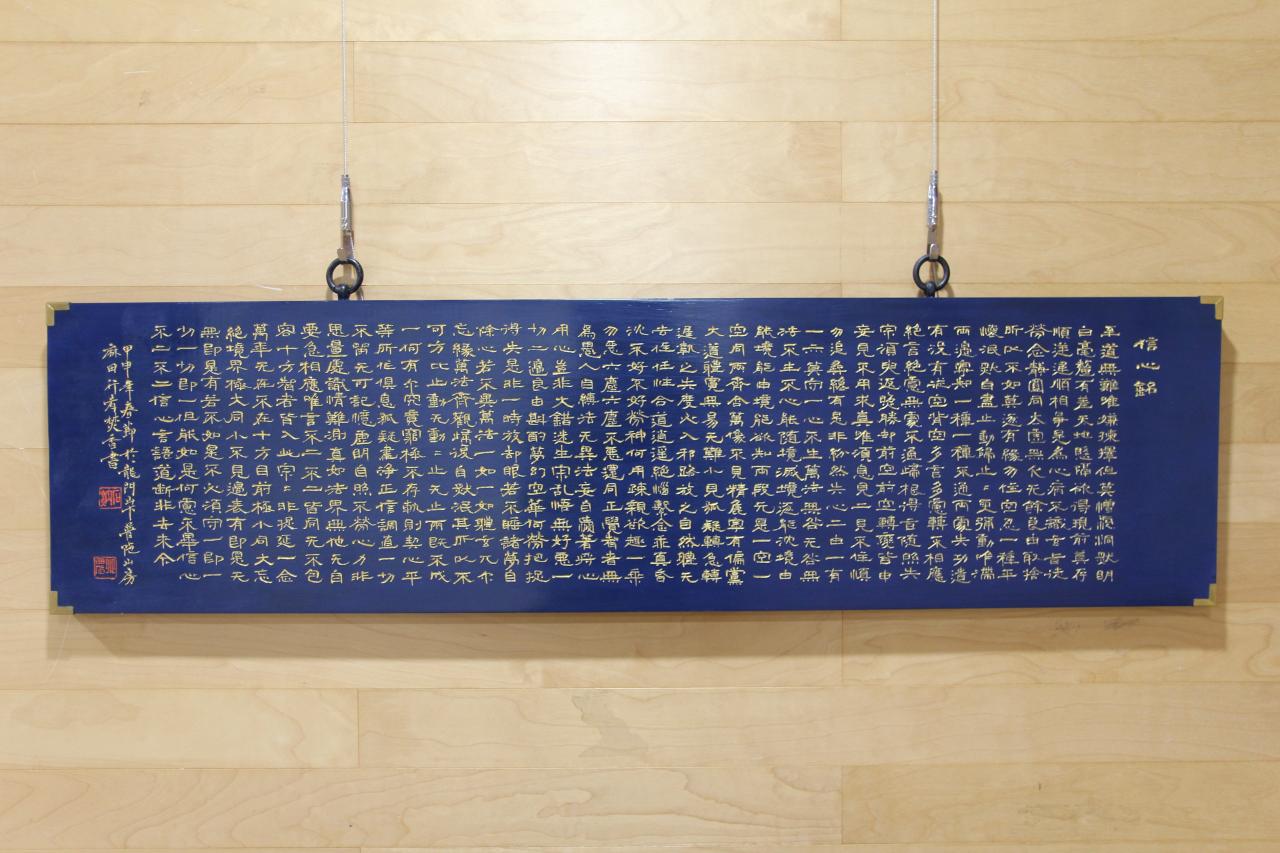 信心銘
至道無難唯嫌揀擇但莫憎愛洞然明
白毫釐有差天地懸隔欲得現前莫存
順逆違順相爭是爲心病不識玄旨徒
勞念靜圓同太虛無欠无餘良由取捨
所以不如莫逐有緣勿住空忍一種平
懷泯然自盡止動歸止〻更彌動唯滯
兩邊寧知一種一種不通兩處失功遣
有沒有從空背空多言多慮轉不相應
絕言絕慮無處不通歸根得旨隨照失
宗須臾返照勝却前空前空轉變皆由
妄見不用求真唯須息見二見不住慎
勿追尋纔有是非紛然失心二由一有
一亦莫守一心不生萬法無咎无咎無
法不生不心能隨境滅境逐能沈境由
能境能由境能欲知兩段元是一空一
空同兩齊含萬像不見精麤寧有偏黨
大道體寬無易无難小見狐疑轉急轉
遲執之失度必入邪路放之自然體无
去住任性合道逍遙絕惱繫念乖真昏
沈不好不好勞神何用疎親欲趣一乘
勿惡六塵六塵不惡還同正覺智者無
爲愚人自縛法无異法妄自愛著將心
用心豈非大錯迷生寂亂悟無好惡一
切二邊良由斟酌夢幻空華何勞把捉
得失是非一時放却眼若不睡諸夢自
除心若不異萬法一如一如體玄兀尔
忘緣萬法齊觀歸復自然泯其所以不
可方比止動无動〻止无止兩既不成
一何有尔究竟窮極不存軌則契心平
等所作俱息狐疑盡淨正信調直一切
不留无可記憶虛明自照不勞心力非
思量處識情難測真如法界無他无自
要急相應唯言不二不二皆同无不包
容十方智者皆入此宗〻非促延一念
萬年无在不在十方目前極小同大忘
絕境界極大同小不見邊表有即是无
無即是有若不如是不必須守一即一
切一切即一但能如是何慮不畢信心
不二不二信心言語道斷非去來今
甲申年春節於龍門山下普陀山房
麻田行者焚香書